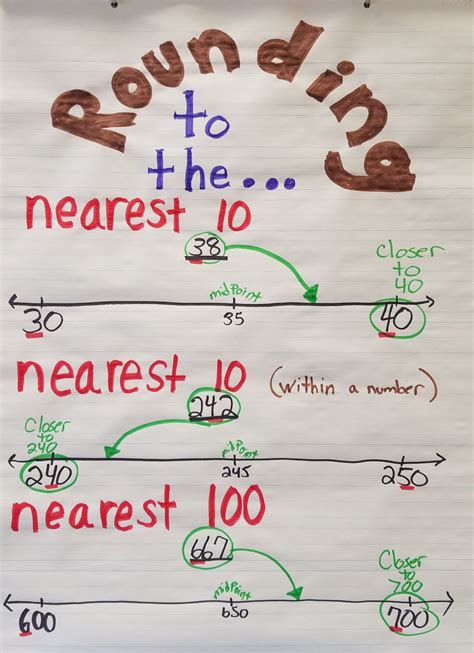 Rounding
to
the...
nearest 10
38
Closer
to
40
midPoint
30 35 40
nearest 10 (within a number)
242
Closer
to
240
midPoint
240 245 250
nearest 100
667
Closer
to
700
midPoint
600 650 700